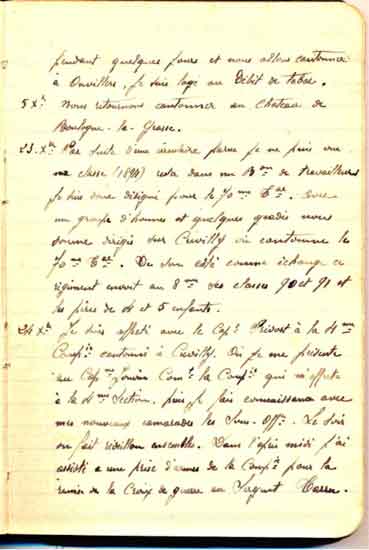 pendant quelques jours et nous allons cantonner
à Onvillers, je suis logé au Débit de tabac.
5 Xbre Nous retournons cantonner au Chateau de
Boulogne-la-Grasse.
23. Xbre Par suite d'une circulaire parue je ne puis vu
ma classe (1894) rester dans un Bon de travailleurs
je suis donc désigné pour le 70me Eal. avec
un groupe d'hommes et quelques gradés nous
somme dirigés sur Cuvilly où cantonne le
70me Eal. De son côté comme échange ce
régiment envoit au 8me des classes 90 et 91 et
les pères de 4 et 5 enfants.
24 Xbre Je suis affecté avec le Capl Prévost à la 4me
Compie cantonné à Cuvilly. Où je me présente
au Capne Jouvin Comt la Compie qui m'affecte
à la 4me Section, puis je fais connaissance avec
mes nouveaux camarades les Sous-Offrs. Le soir
on fait réveillon ensemble. Dans l'après midi j'ai
assisté a une prise d'armes de la Compie pour la
remise de la Croix de guerre au Sergent